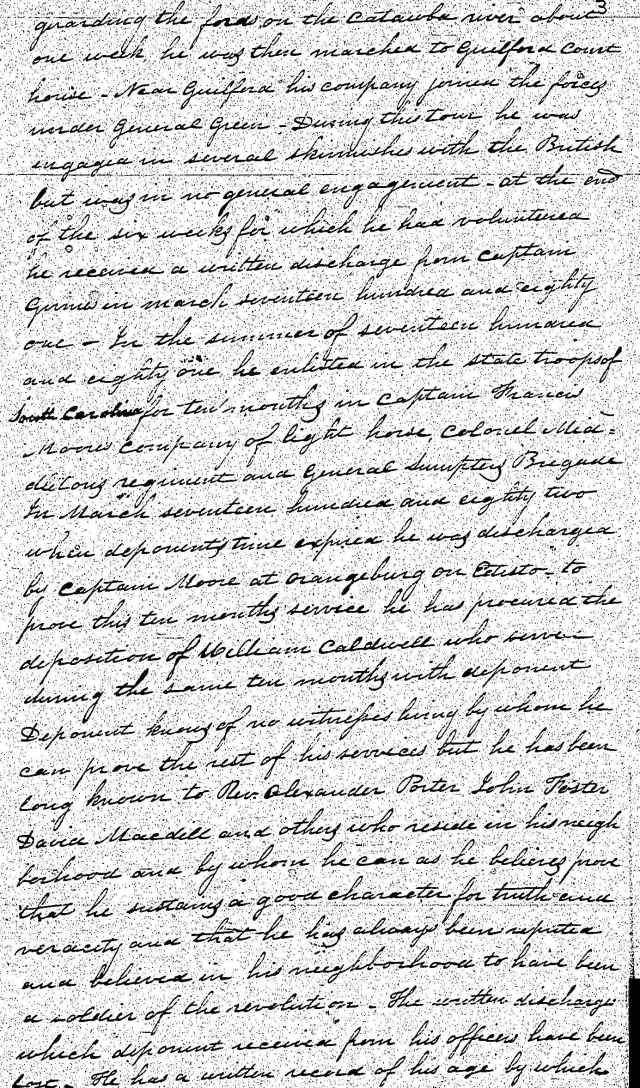 3
guarding the fords on the Catawba river about
one week, he was then marched to Guilford Court
house - Near Guilford his company joined the forces
under General Green - During this tour he was
engaged in several skirmishes with the British
but was in no general engagement - at the end
of the six weeks for which he had voluntered
he received a written discharge from Captain
in march seventeen hundred and eighty
one - In the summer of seventeen hundred
and eighty one he enlisted in the state troops of
South Carolina for ten months in Captain Francis
Moores company of light horse, Colonel Mid=
dletons regiment and General Sumpters Brigade
In March seventeen hundred and eighty two
when deponents time expired he was discharged
by Captain Moore at orangeburg on Edisto - to
prove this ten months service he has procured the
deposition of William Caldwell who served
during the same ten months with deponent
Deponent knows of no witnesses living by whom he
can prove the rest of his services but he has been
long known to Rev. Alexander Porter John Foster
David Macdill and others who reside in his neigh
borhood and by whom he can as he believes prove
that he sustains a good character for truth and
veracity and that he has always been reputed
and believed in his neighborhood to have been
a soldier of the revolution - The written discharges
which deponent received from his officers have been
lost - He has a written record of his age by which